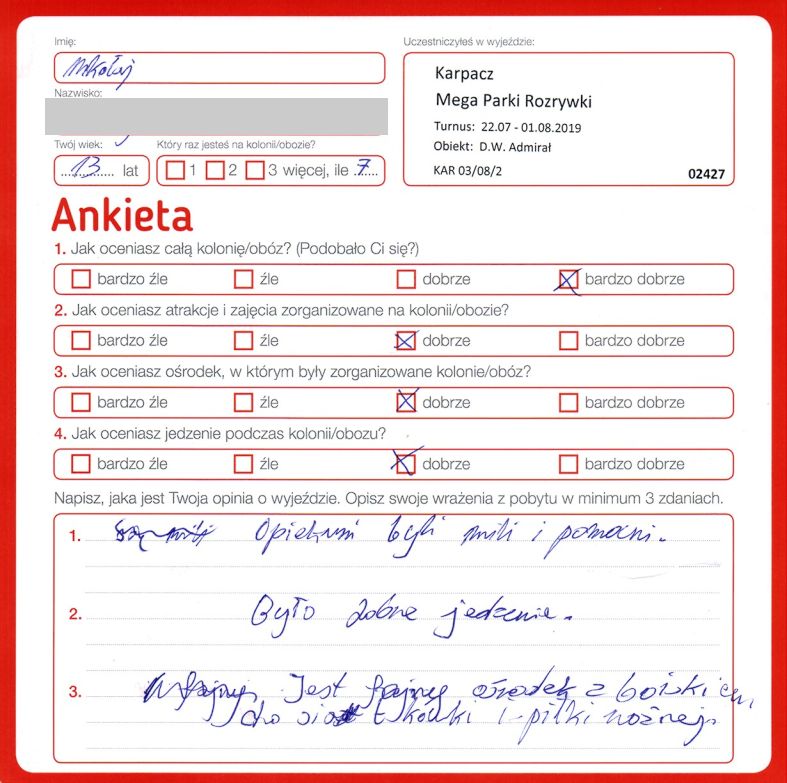 Imię:
Mikołaj
Nazwisko:
Twój wiek:
Który raz jesteś na kolonii/obozie?
13 lat
1 2 3 więcej, ile 7
Uczestniczyłeś w wyjeździe:
Karpacz
Mega Parki Rozrywki
Turnus: 22.07 - 01.08.2019
Obiekt: D.W. Admirał
KAR 03/08/2
02427
Ankieta
1. Jak oceniasz całą kolonię/obóz? (Podobało Ci się?)
bardzo źle źle dobrze bardzo dobrze
2. Jak oceniasz atrakcje i zajęcia zorganizowane na kolonii/obozie?
bardzo źle źle dobrze bardzo dobrze
3. Jak oceniasz ośrodek, w którym były zorganizowane kolonie/obóz?
bardzo źle źle dobrze bardzo dobrze
4. Jak oceniasz jedzenie podczas kolonii/obozu?
bardzo źle źle dobrze bardzo dobrze
Napisz, jaka jest Twoja opinia o wyjeździe. Opisz swoje wrażenia z pobytu w minimum 3 zdaniach.
1. Opiekuni byli mili i pomocni.
2. Było dobre jedzenie.
3. Jest fajny ośrodek z boiskiem
do siatkówki i piłki nożnej.